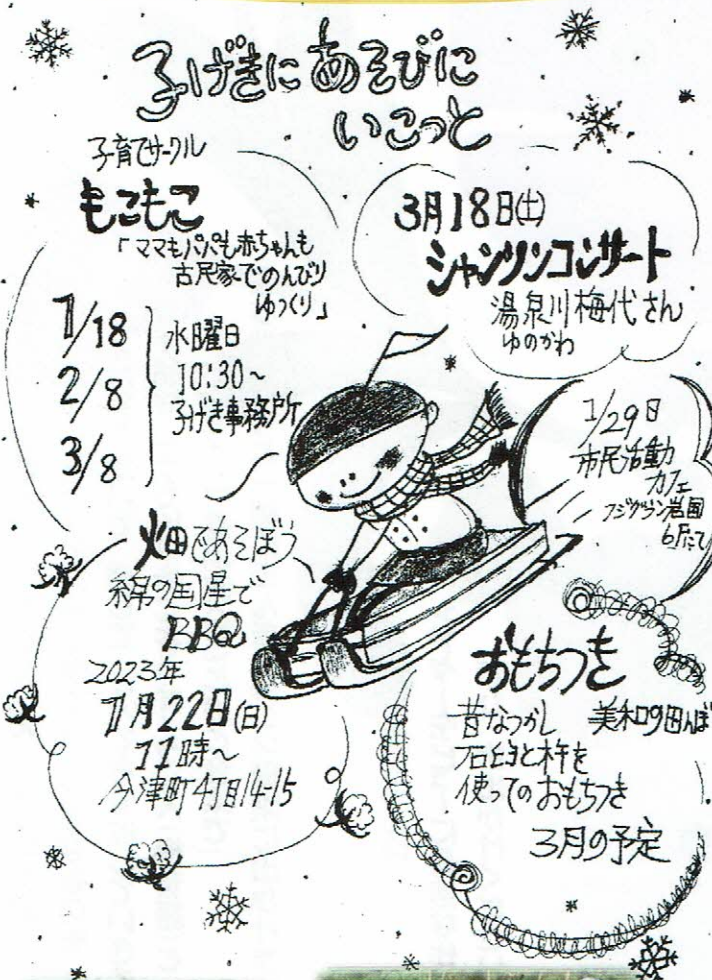 子げきにあそびに
いこっと
子育てサークル
もこもこ
「ママもパパも赤ちゃんも
古民家でのんびり
ゆっくり」
1/18
2/8
3/8
水曜日
10:30～
子げき事務所
3月18日(土)
シャンソンコンサート
湯泉川梅代さん
ゆのかわ
1/29日
市民活動
カフェ
フジグラン岩国
6Fにて
畑であそぼう
綿の国星で
BBQ
2023年
1月22日(日)
11時～
今津町4丁目14-15
おもちつき
昔なつかし 美和の田んぼ
石臼と杵を
使ってのおもちつき
3月の予定